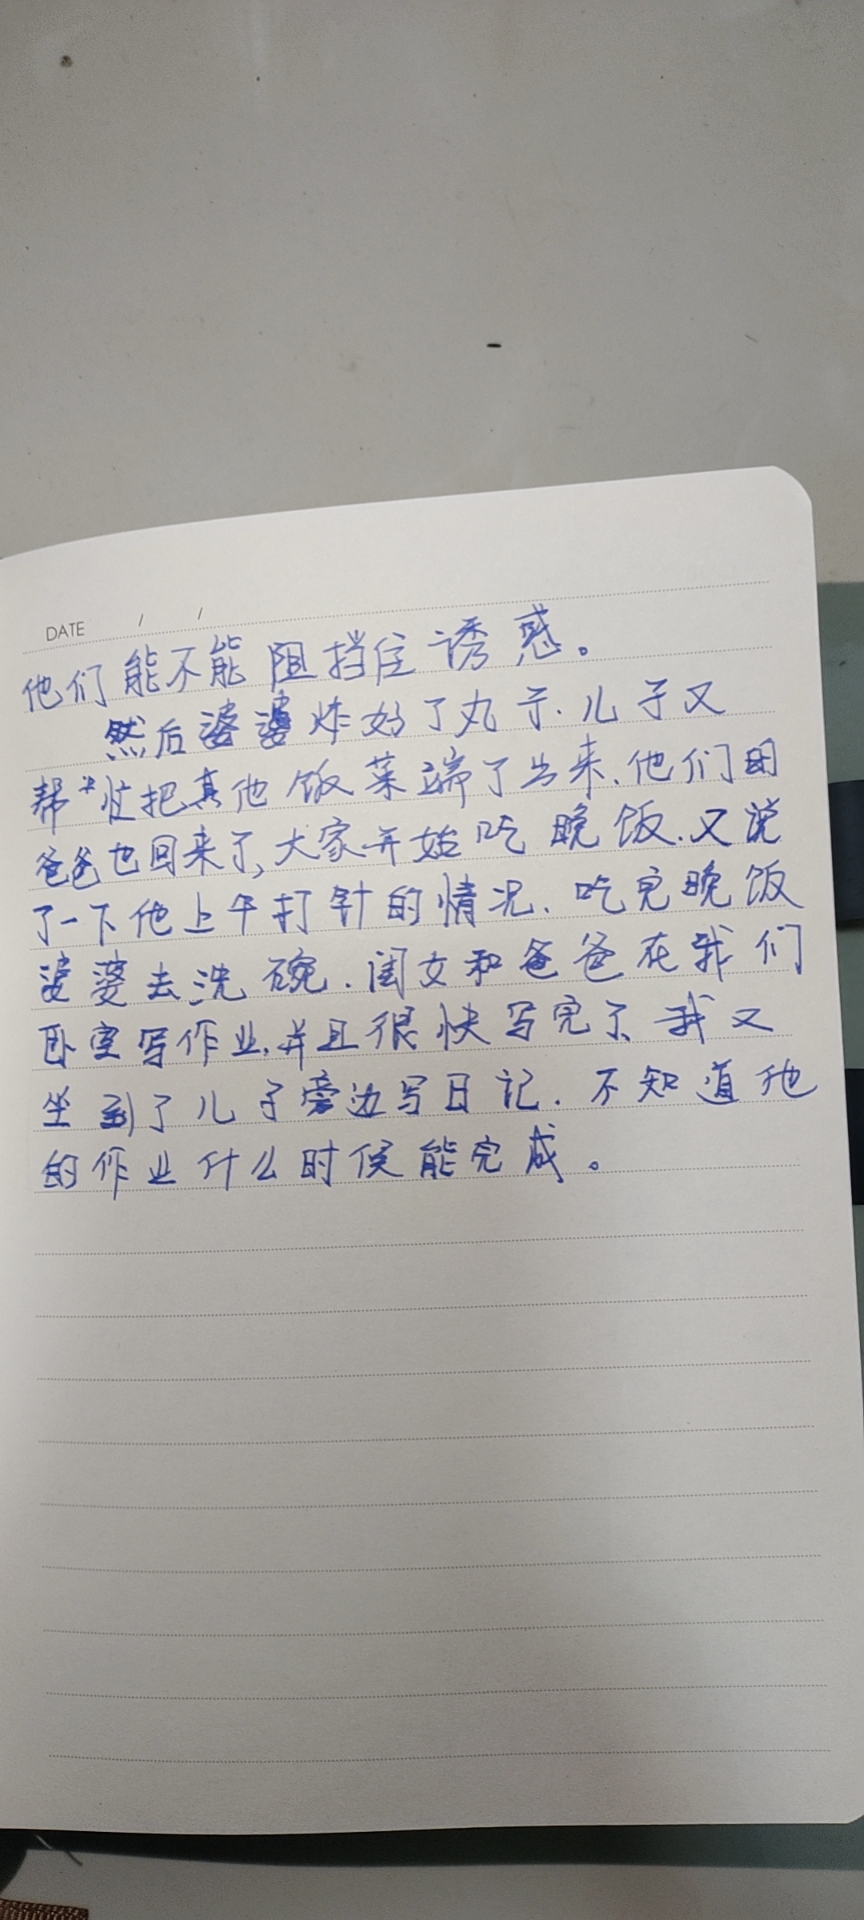 DATE / /
他们能不能阻挡住诱惑。
然后婆婆炸好了丸子.儿子又
帮忙把其他饭菜端了出来.他们因
爸爸也回来了,大家开始吃晚饭.又说
了一下他上午打针的情况.吃完晚饭
婆婆去洗碗.闺女和爸爸在我们
卧室写作业,并且很快写完了.我又
坐到了儿子旁边写日记.不知道他
的作业什么时候能完成。